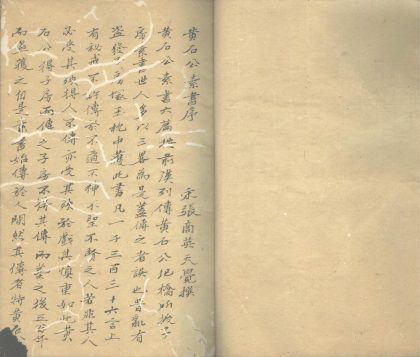 黄石公素書序
宋張商英天覺撰
黄石公素書六篇按前漢列傳黄石公圯橋所授子
房素書世人多以三畧為是蓋傳之者誤也晋亂有
盗發子房塚玉枕中獲此書凡一千三百三十六言上
有秘戒不許傳於不道不神不聖不賢之人若非其人
必受其殃得人不傳亦受其殃於戲其慎重如此黄
石公得子房而傳之子房不得其傳而葬之後五百年
而盗獲之自是素書始傳於人間然其傳者特黄石